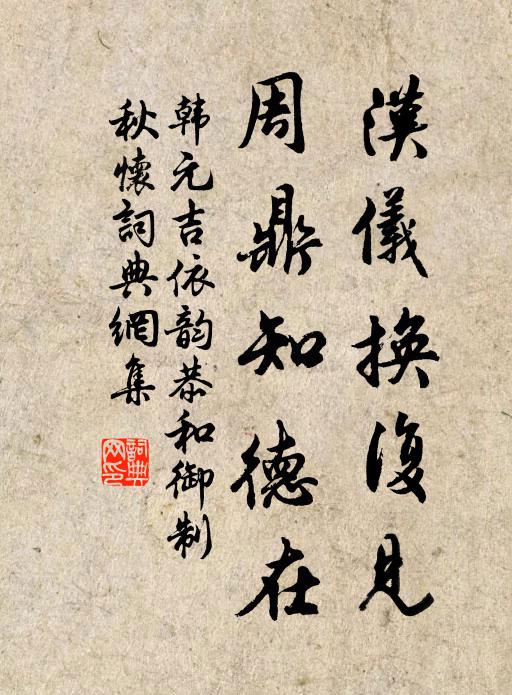 漢儀換復見
周鼎知德在
韩元吉依韵恭和御制
秋懷詞典網集
詞典
网印